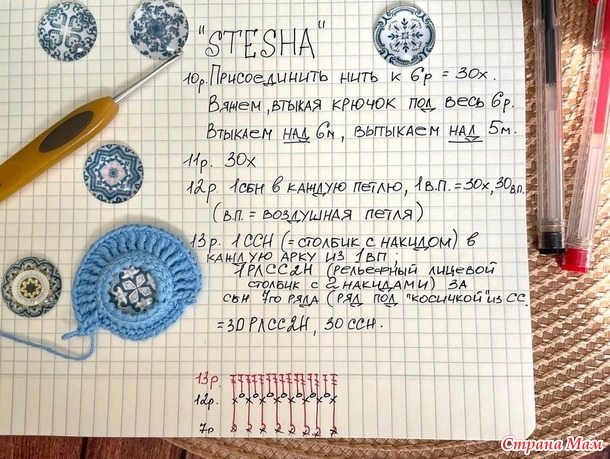 "STESHA"
10р. Присоединить нить к 6р = 30х.
Вяжем, втыкая крючок под весь 6р.
Втыкаем над 6м, вытыкаем над 5м.
11р. 30х
12р. 1сбн в каждую петлю, 1в.п. = 30х, 30в.п.
(в.п. = воздушная петля)
13р. 1 ССН (= столбик с накидом) в
каждую арку из 1вп;
1РЛСС2Н (рельефный лицевой
столбик с 2 накидами) за
сбн 7го ряда (ряд под "косичкой" из СС.
= 30 РЛСС2Н, 30 ССН.
13р.
12р.
7р
Страна Мам